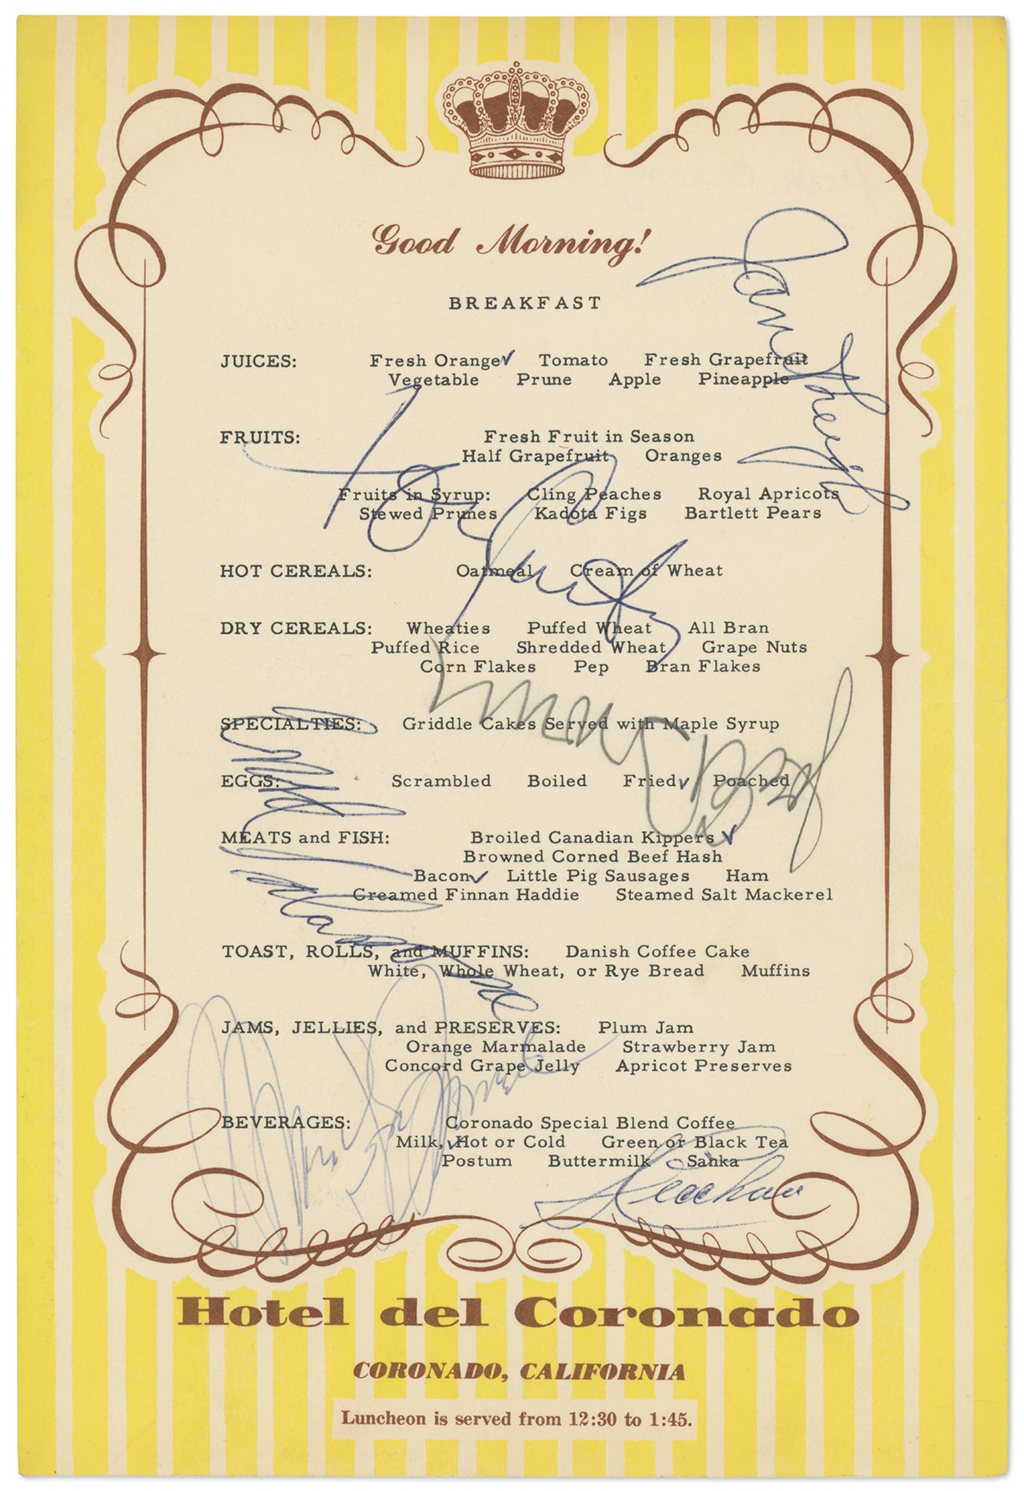 Good Morning!
BREAKFAST
JUICES: Fresh Orange Tomato Fresh Grapefruit
Vegetable Prune Apple Pineapple
FRUITS: Fresh Fruit in Season
Half Grapefruit Oranges
Fruits in Syrup: Cling Peaches Royal Apricots
Stewed Prunes Kadota Figs Bartlett Pears
HOT CEREALS: Oatmeal Cream of Wheat
DRY CEREALS: Wheaties Puffed Wheat All Bran
Puffed Rice Shredded Wheat Grape Nuts
Corn Flakes Pep Bran Flakes
SPECIALTIES: Griddle Cakes Served with Maple Syrup
EGGS: Scrambled Boiled Fried Poached
MEATS and FISH: Broiled Canadian Kippers
Browned Corned Beef Hash
Bacon Little Pig Sausages Ham
Creamed Finnan Haddie Steamed Salt Mackerel
TOAST, ROLLS, and MUFFINS: Danish Coffee Cake
White, Whole Wheat, or Rye Bread Muffins
JAMS, JELLIES, and PRESERVES: Plum Jam
Orange Marmalade Strawberry Jam
Concord Grape Jelly Apricot Preserves
BEVERAGES: Coronado Special Blend Coffee
Milk, Hot or Cold Green or Black Tea
Postum Buttermilk Sanka
Tony Curtis
Hotel del Coronado
CORONADO, CALIFORNIA
Luncheon is served from 12:30 to 1:45.